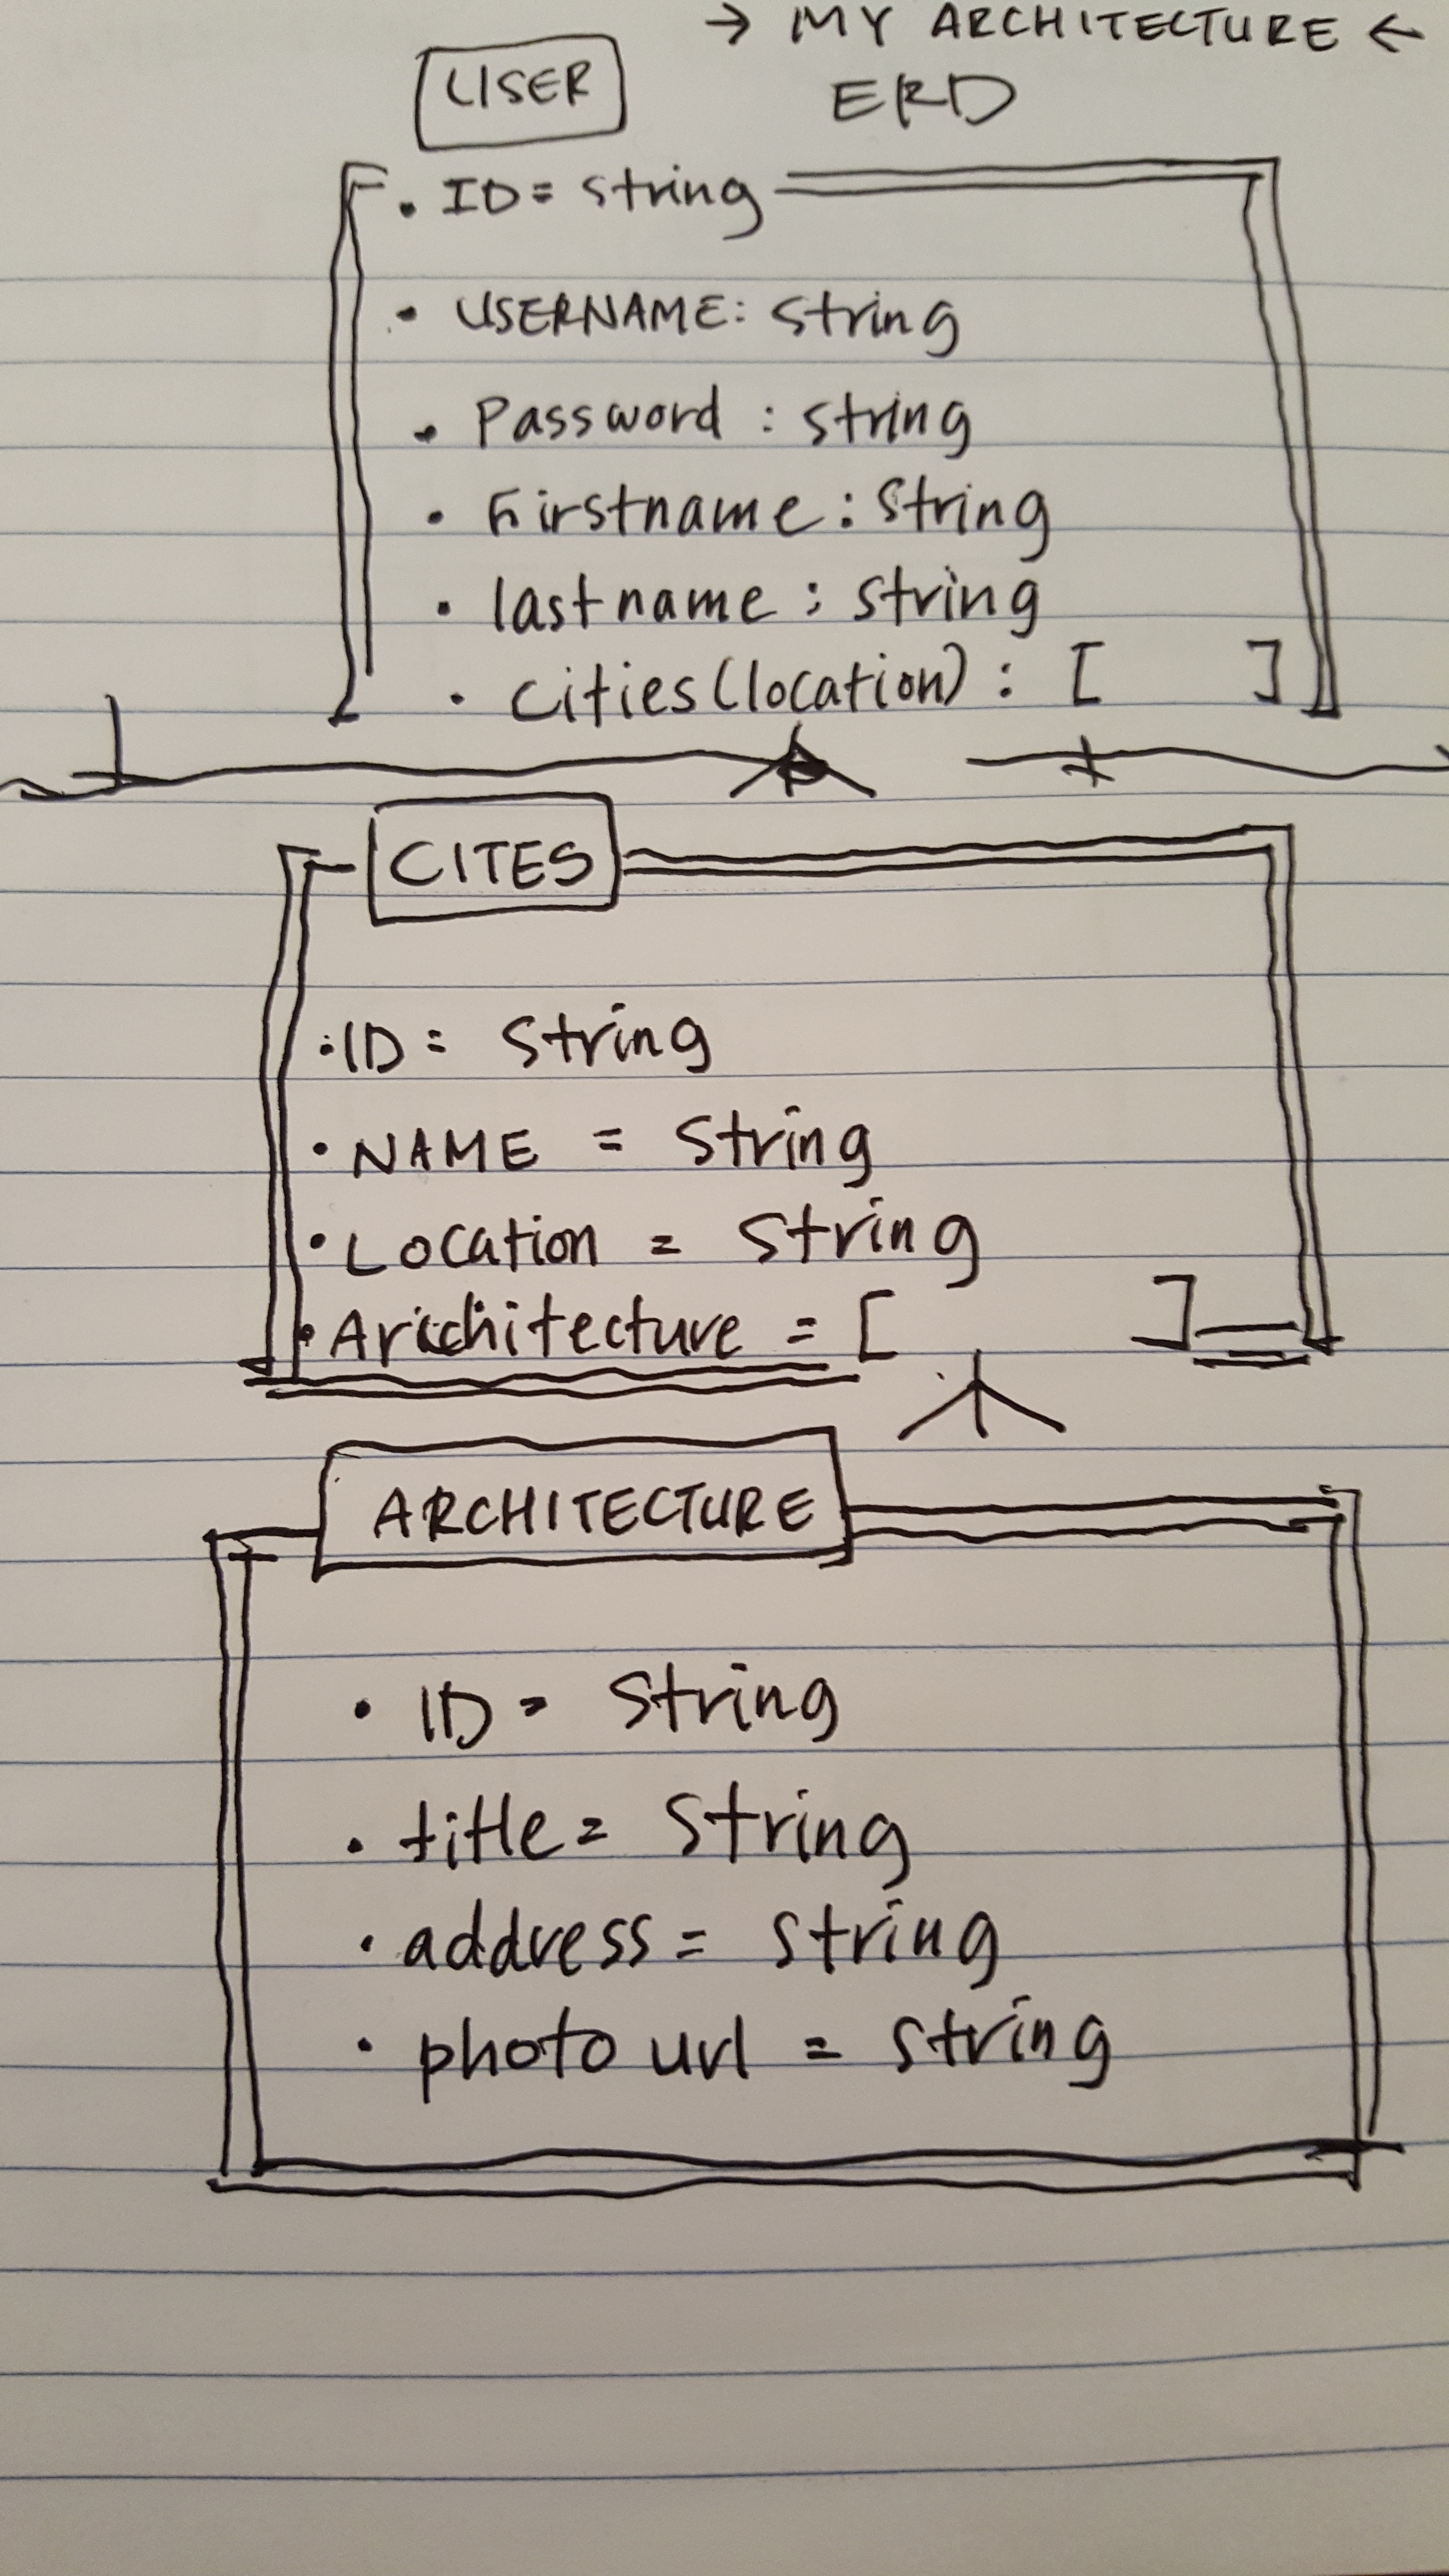 → MY ARCHITECTURE ←
USER
ERD
• ID = string
• USERNAME: string
• Password : string
• Firstname : string
• lastname : string
• cities (location) : [ ]
CITES
• ID = string
• NAME = string
• Location = string
• Architecture = [ ]
ARCHITECTURE
• ID = string
• title = string
• address = string
• photo url = string